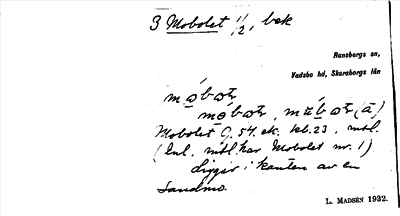 3 Mobolet 1/2, bek
Ransbergs sn,
Vadsbo hd, Skaraborgs län
Mobolet G. 54. ek. kb. 23, mtl.
(Enl. mtl. har Mobolet nr. 1)
Ligger i kanten av en
Sandmo.
L. MADSÉN 1932.